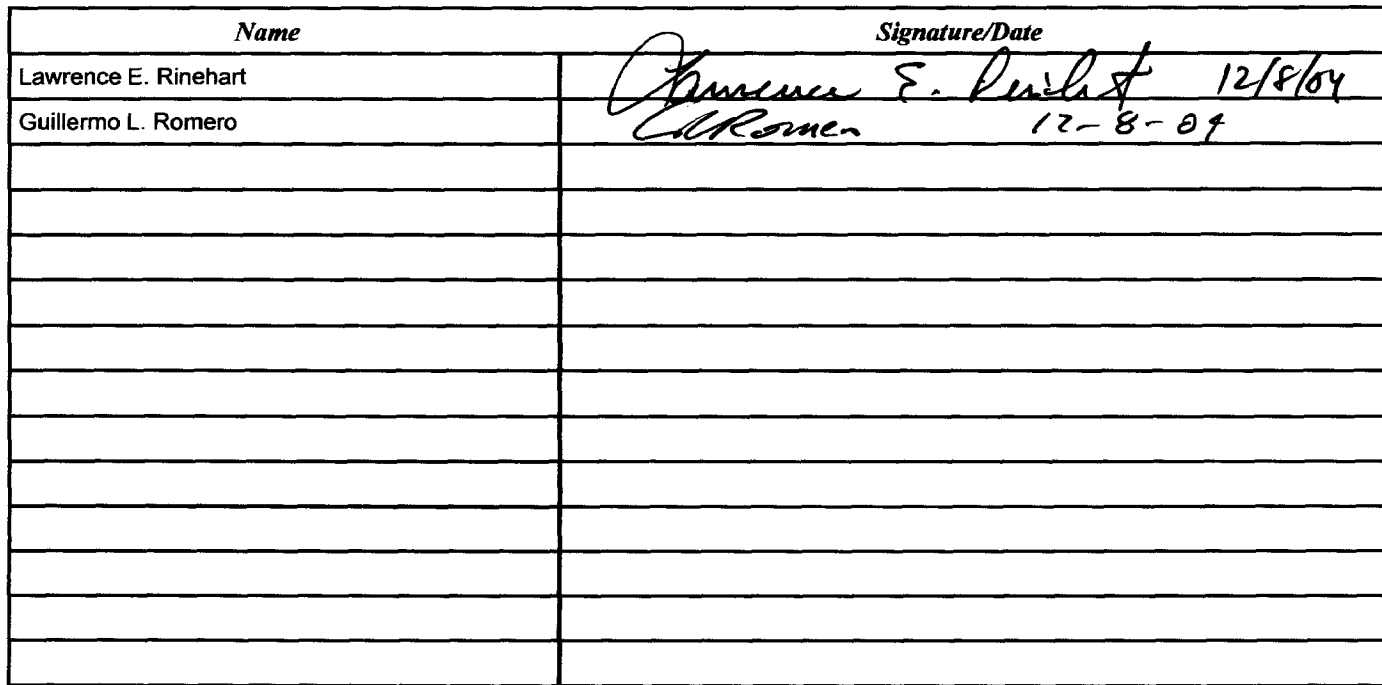 Name Signature/Date
Lawrence E. Rinehart Lawrence E. Rinehart 12/8/04
Guillermo L. Romero GLRomero 12-8-04